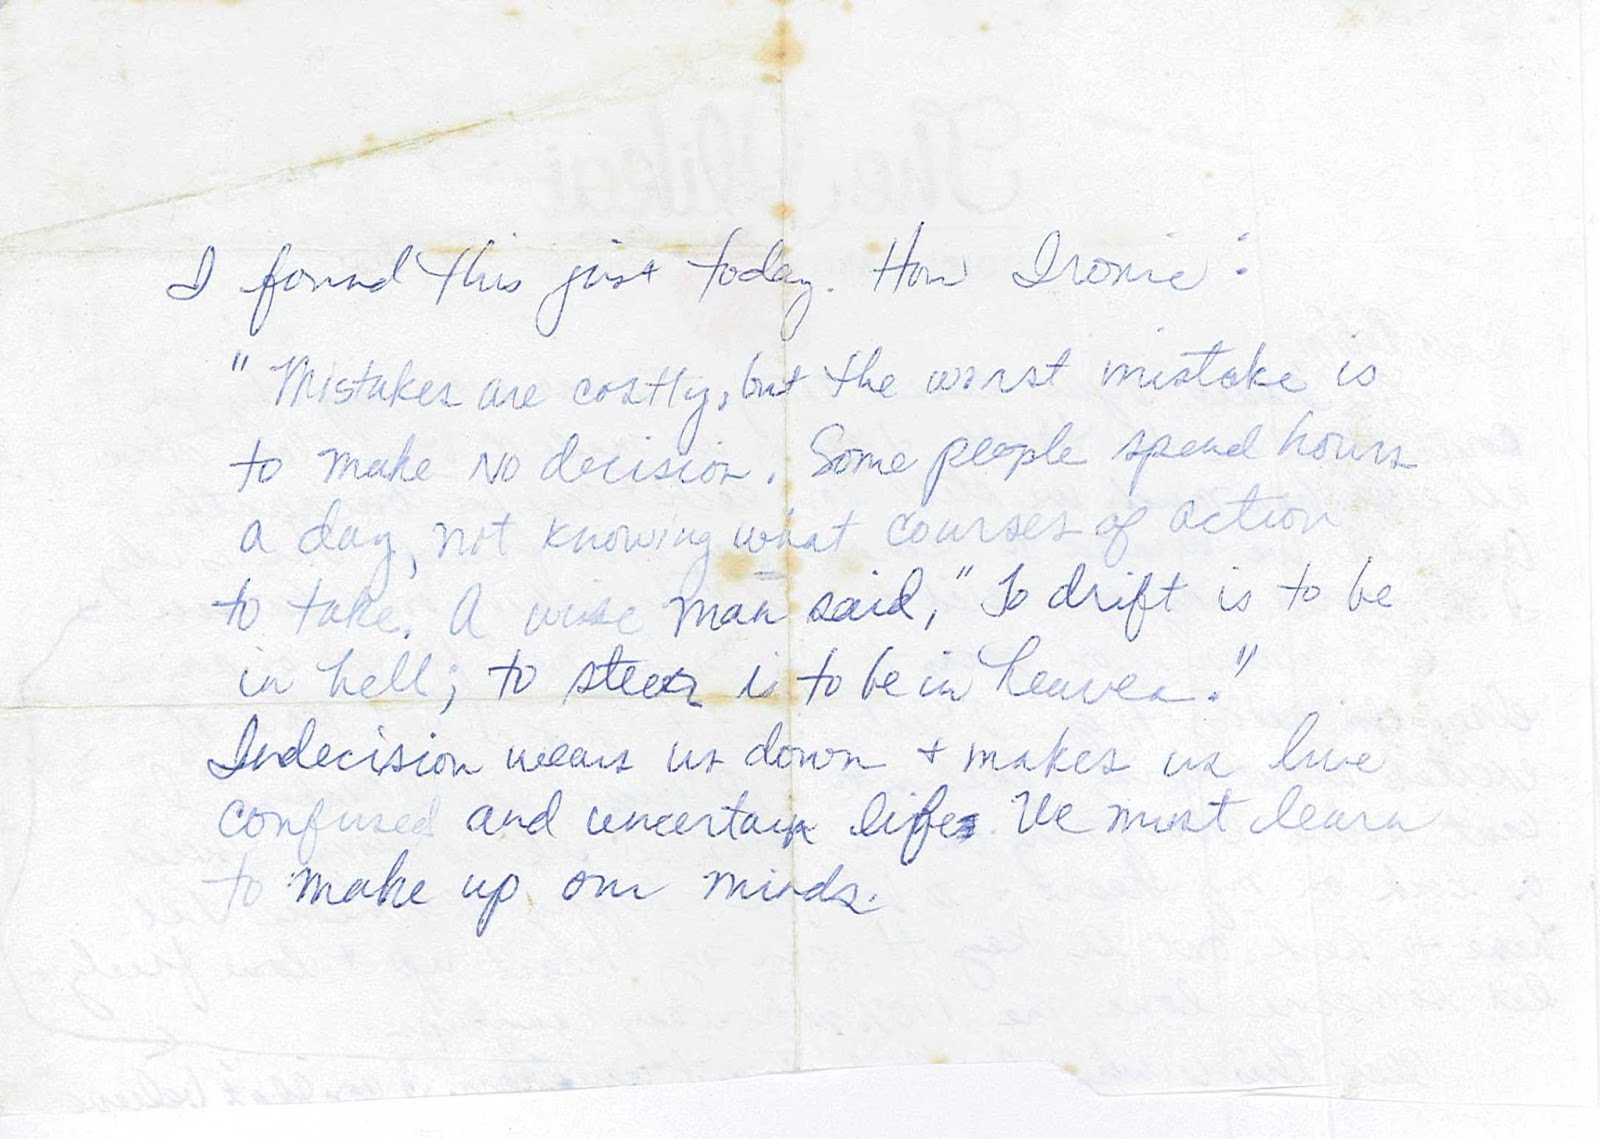 I found this just today. How Ironic:
"Mistakes are costly, but the worst mistake is
to make no decision. Some people spend hours
a day, not knowing what courses of action
to take. A wise man said, "To drift is to be
in hell; to steer is to be in heaven."
Indecision wears us down + makes us live
confused and uncertain life. We must learn
to make up our minds.